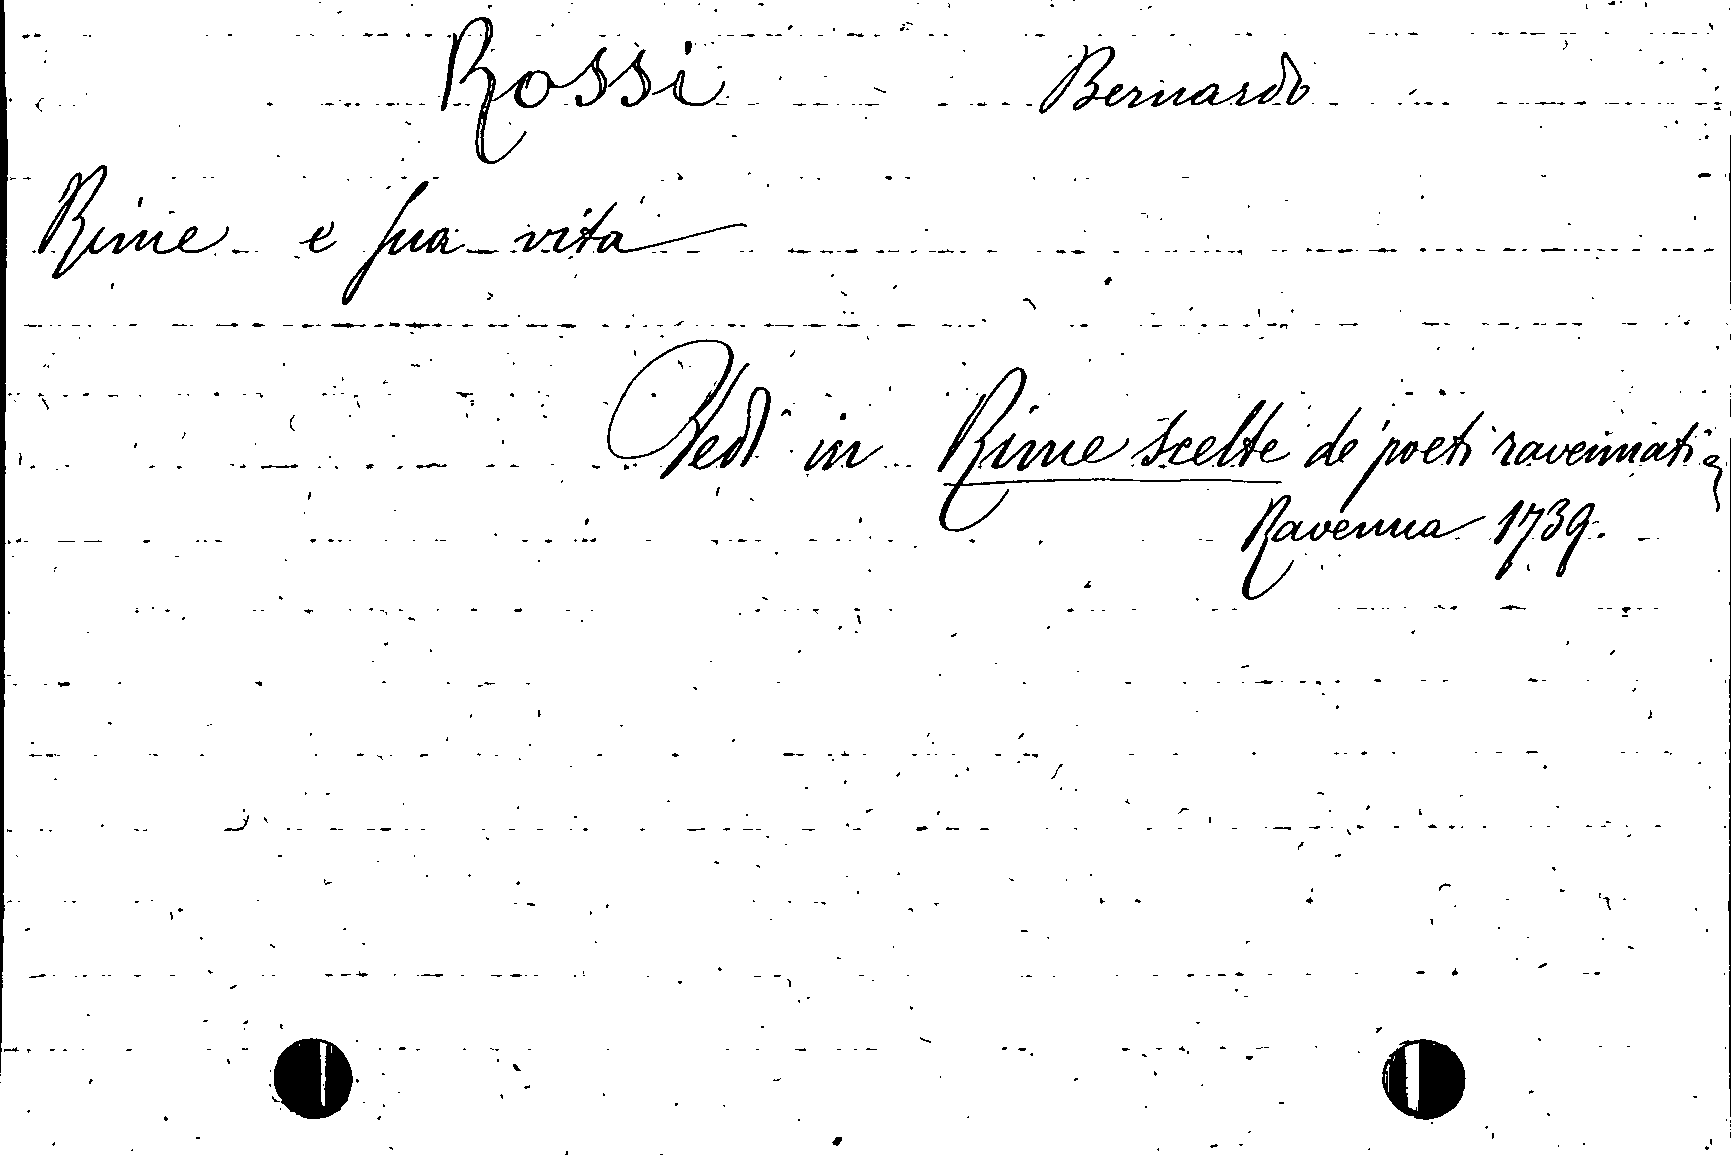 Rossi Bernardo
Rime e sua vita
Vedi in Rime scelte de' poeti ravennati,
Ravenna 1739.